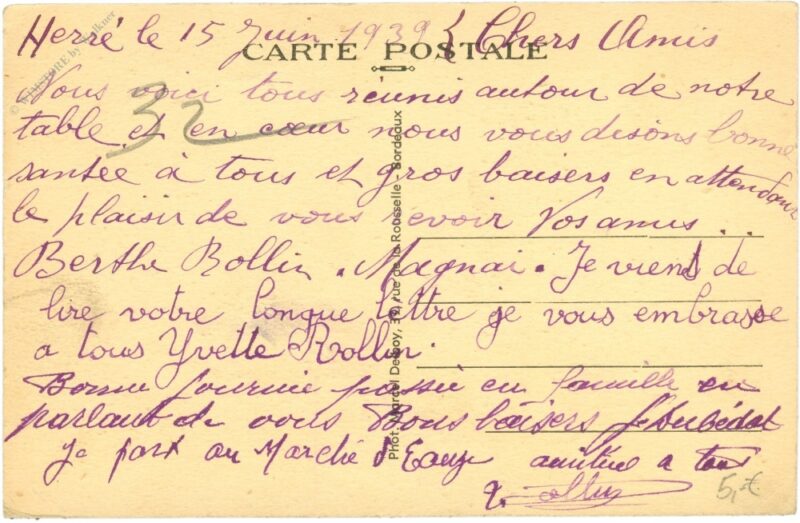 Herré le 15 Juin 1939 Chers Amis
CARTE POSTALE
Nous voici tous réunis autour de notre
32
table et en cœur nous vous disons bonne
santée à tous et gros baisers en attendant
le plaisir de vous revoir Vos amis..
Berthe Rollin. Magnai. Je viens de
lire votre longue lettre je vous embrasse
a tous Yvette Rollin.
Bonne journée passée en famille en
parlant de vous Bons baisers
je part au Marché d'Eauze amitié a tous
Phot. Marcel Delboy, rue de la Rousselle - Bordeaux
5,-€